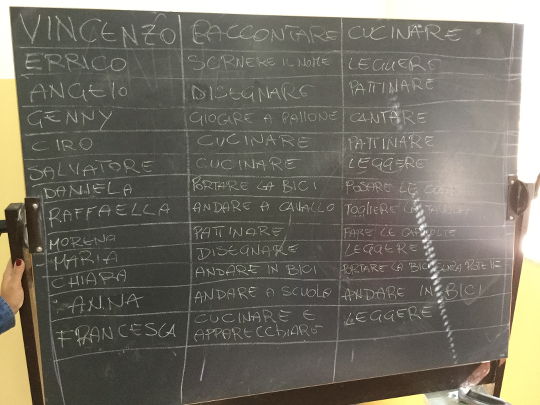 VINCENZO RACCONTARE CUCINARE
ERRICO SCRIVERE IL NOME LEGGERE
ANGELO DISEGNARE PATTINARE
GENNY GIOCARE A PALLONE CANTARE
CIRO CUCINARE PATTINARE
SALVATORE CUCINARE LEGGERE
DANIELA PORTARE LA BICI LE
RAFFAELLA ANDARE A CAVALLO TOGLIERE
MORENA PATTINARE FARE LE
MARIA DISEGNARE LEGGERE
CHIARA ANDARE IN BICI PORTARE LA BICI
ANNA ANDARE A SCUOLA ANDARE IN BICI
FRANCESCA CUCINARE E LEGGERE
APPARECCHIARE